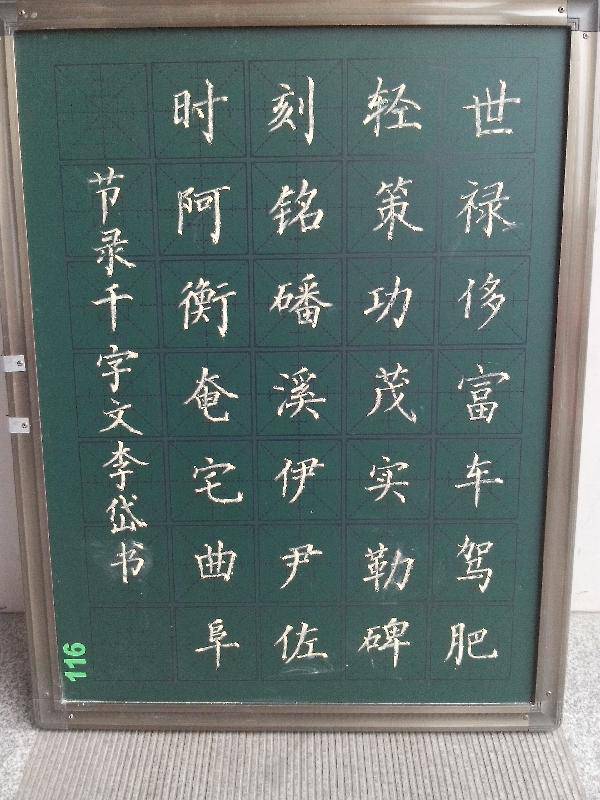 世禄侈富车驾肥
轻策功茂实勒碑
刻铭磻溪伊尹佐
时阿衡奄宅曲阜
节录千字文李岱书
116